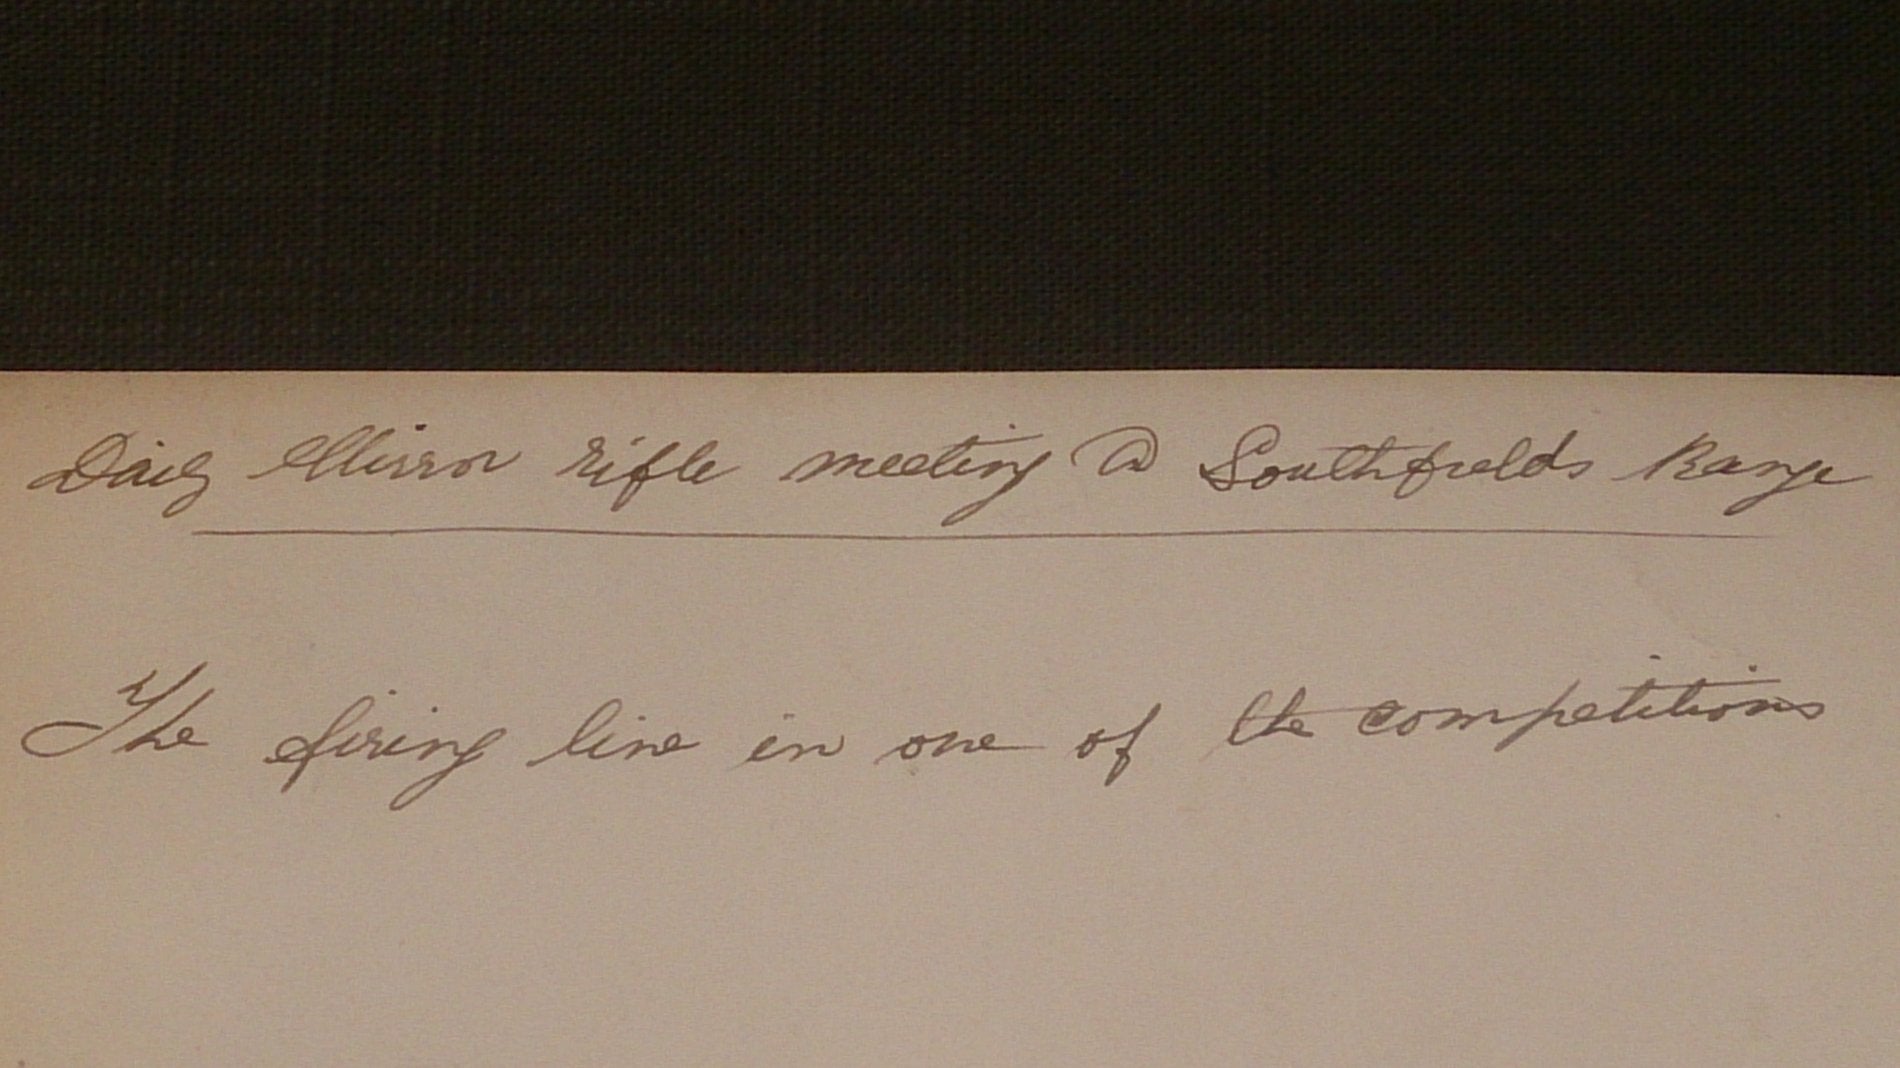 Daily Mirror Rifle meeting @ Southfields Range
The firing line in one of the competitions